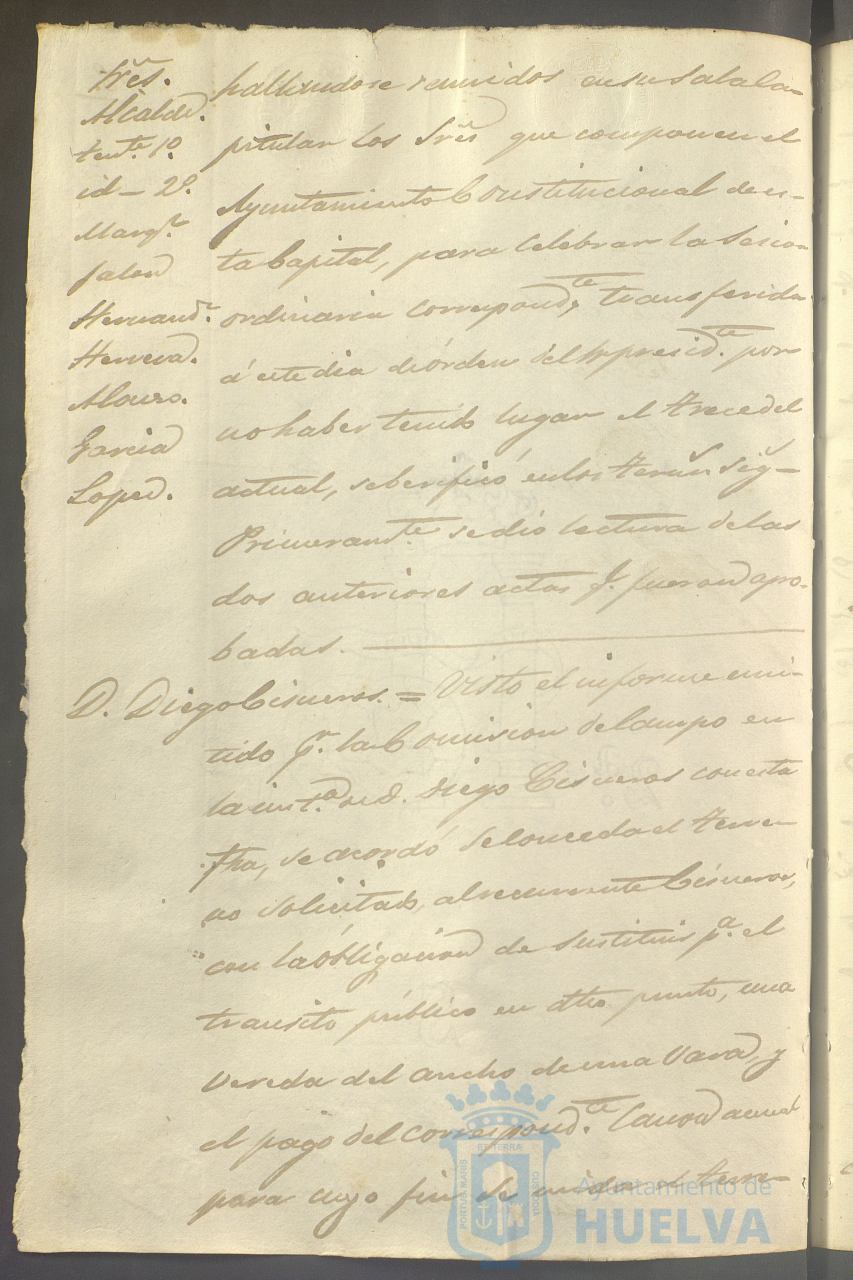 Sres.
Alcalde.
tente. 1º
id– 2º.
Marqz.
Jalon
Hernandz.
Herrera.
Alonso.
Garcia
Lopez.
hallandose reunidos en su Sala Ca-
pitular los Sres que componen el
Ayuntamiento Constitucional de es-
ta Capital, para celebrar la Sesion
ordinaria correspondte, transferida
á este dia de órden del Sr presidte por
no haber tenido lugar el trece del
actual, se berificó en los termns sigs–
Primeramte se dio lectura de las
dos anteriores actas q. fueron apro-
badas.
D. Diego Cisneros. = Visto el informe emi-
tido pr. la Comision del campo en
la inta. de D. Diego Cisneros con esta
fha, se acordó se conceda el terre-
no solicitado, al recurrente Cisneros,
con la obligacion de sustituir pa. el
transito público en dho punto, una
vereda del ancho de una Vara, y
el pago del correspondte. Canon anual
para cuyo fin se mida el terre-
PORTUS MARIS
ET TERRÆ
CUSTODIA
Ayuntamiento de
HUELVA